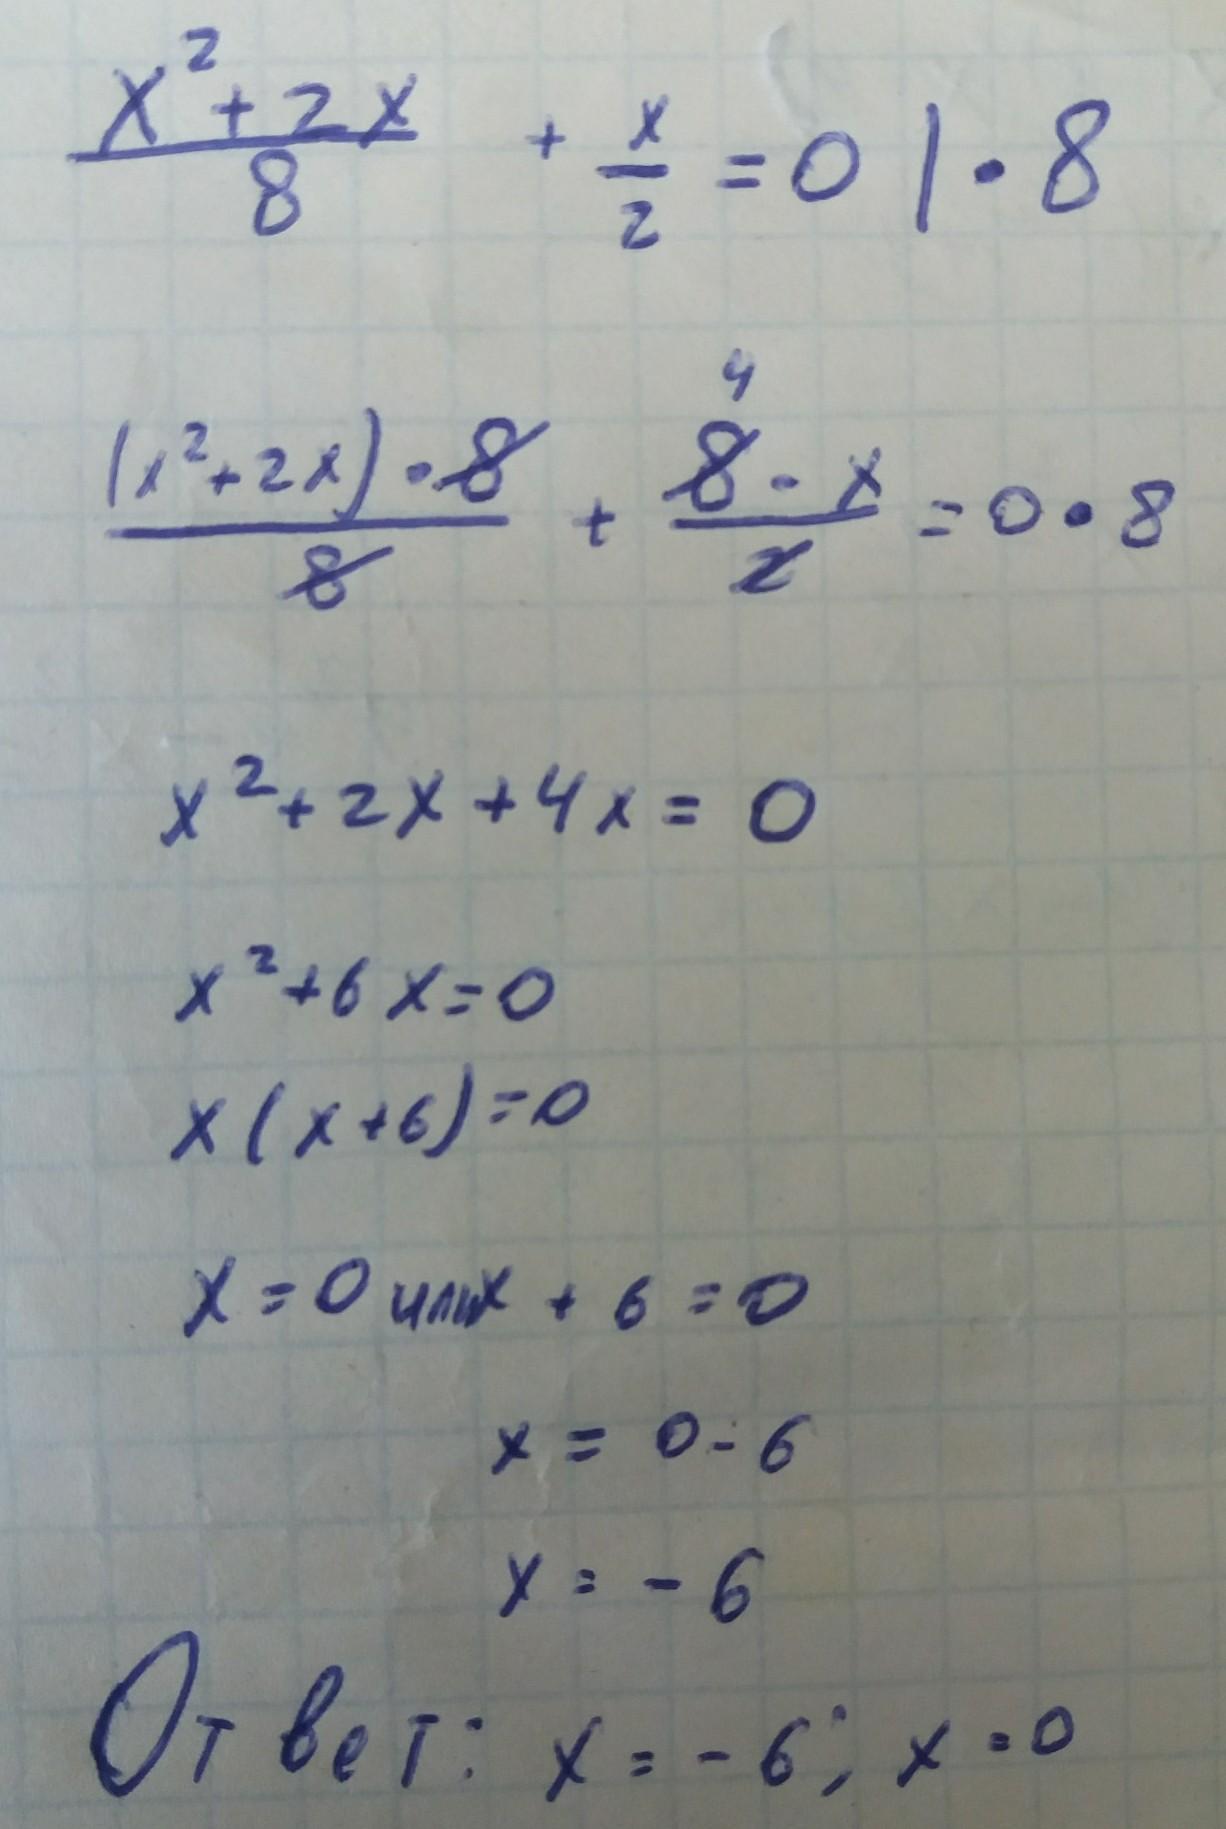 (x²+2x)/8 + x/2 = 0 | · 8
((x²+2x) · 8)/8 + (8 · x)/2 = 0 · 8
4
x² + 2x + 4x = 0
x² + 6x = 0
x(x+6) = 0
x = 0 или x + 6 = 0
x = 0 - 6
x = - 6
Ответ: x = - 6; x = 0